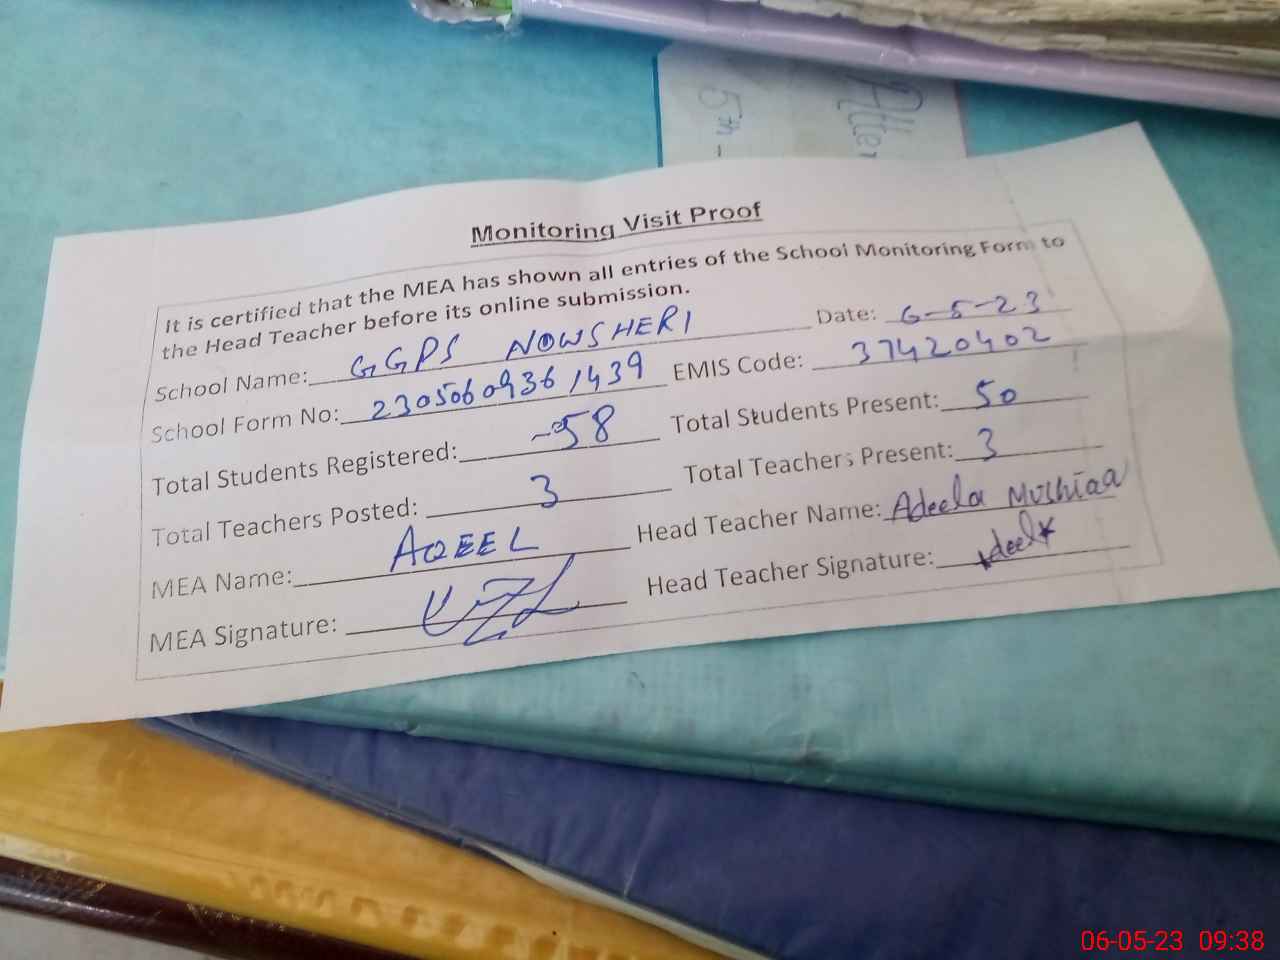 Atten
5th -
Monitoring Visit Proof
It is certified that the MEA has shown all entries of the School Monitoring Form to
the Head Teacher before its online submission.
School Name: GGPS NOWSHERI Date: 6-5-23
School Form No: 23050609361439 EMIS Code: 37420402
Total Students Registered: 58 Total Students Present: 50
Total Teachers Posted: 3 Total Teachers Present: 3
MEA Name: AQEEL Head Teacher Name: Adeela
MEA Signature: Head Teacher Signature:
06-05-23 09:38